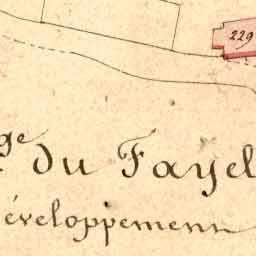 229
ge du Fayel
éveloppemen